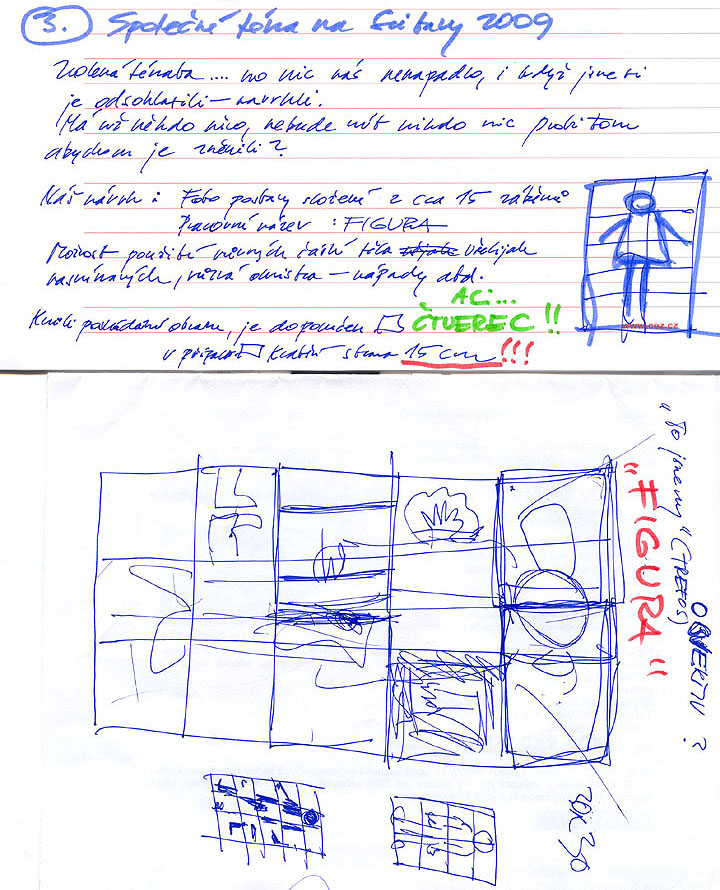 3. Společné téma na Svitavy 2009
Zvolená témata .... no nic nás nenapadlo, i když jsme si
je odsouhlasili – navrhli.
Má už někdo něco, nebude mít nikdo nic proti tom
abychom je změnili?
Náš návrh : Foto postavy složené z cca 15 záběrů
Pracovní název : FIGURA
Možnost použití různých částí těla všelijak
nasnímaných, – nápady atd.
Kvůli poskládání obrazu, je doporučen
ACi...
ČTVEREC !!
v případě kratší strana 15 cm !!!
www.ooz.cz
„To jsme my“
„FIGURA“
OBJEKTIV ?
30x30